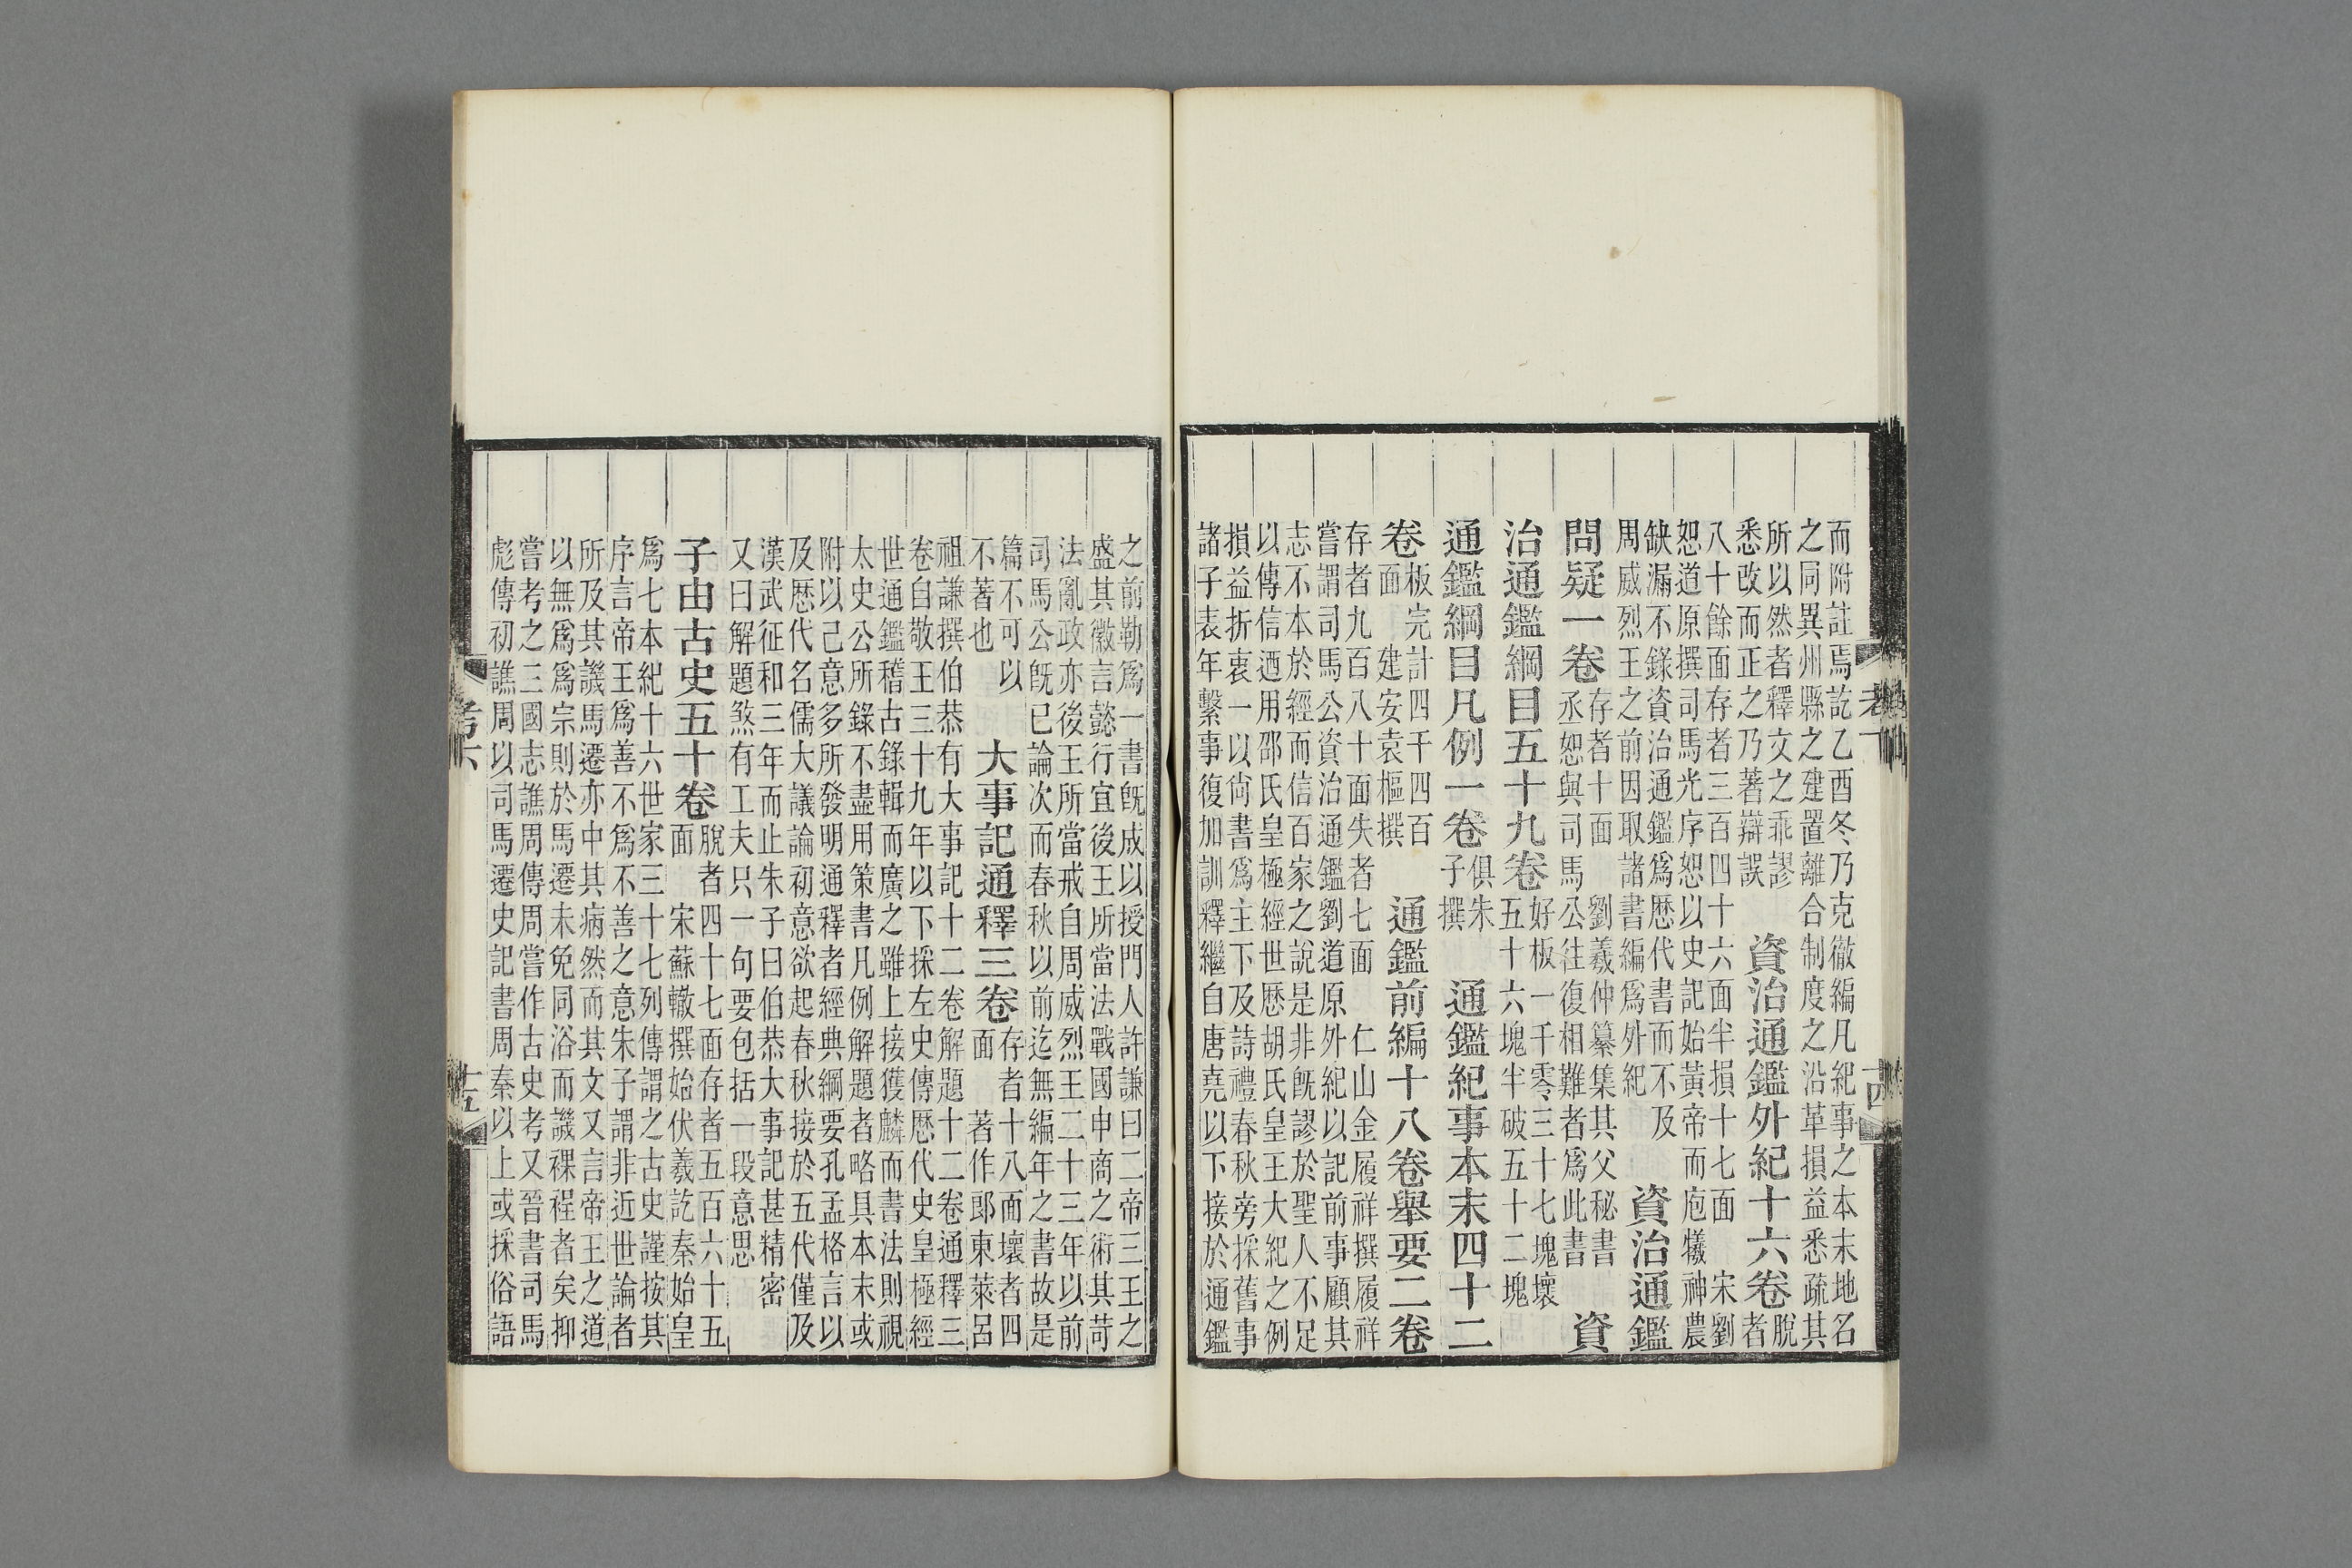 而附註焉訖乙酉冬乃克徹編凡紀事之本末地名
之同異州縣之建置離合制度之沿革損益悉疏其
所以然者釋文之乖謬
悉改而正之乃著辯誤
資治通鑑外紀十六卷
脫
者
八十餘面存者三百四十六面半損十七面 宋劉
恕道原撰司馬光序恕以史記始黃帝而庖犧神農
缺漏不錄資治通鑑爲歷代書而不及
周威烈王之前因取諸書編爲外紀
資治通鑑
問疑一卷
存者十面 劉羲仲纂集其父秘書
丞恕與司馬公往復相難者爲此書
資
治通鑑綱目五十九卷
好板一千零三十七塊壞
五十六塊半破五十二塊
通鑑綱目凡例一卷
俱朱
子撰
通鑑紀事本末四十二
卷
板完計四千四百
面 建安袁樞撰
通鑑前編十八卷舉要二卷
存者九百八十面失者七面 仁山金履祥撰履祥
嘗謂司馬公資治通鑑劉道原外紀以記前事顧其
志不本於經而信百家之說是非旣謬於聖人不足
以傳信迺用邵氏皇極經世歷胡氏皇王大紀之例
損益折衷一以尙書爲主下及詩禮春秋旁採舊事
諸子表年繫事復加訓釋繼自唐堯以下接於通鑑
之前勒爲一書旣成以授門人許謙曰二帝三王之
盛其徽言懿行宜後王所當法戰國申商之術其苛
法亂政亦後王所當戒自周威烈王二十三年以前
司馬公旣已論次而春秋以前迄無編年之書故是
篇不可以
不著也
大事記通釋三卷
存者十八面壞者四
面 著作郎東萊呂
祖謙撰伯恭有大事記十二卷解題十二卷通釋三
卷自敬王三十九年以下採左史傳歷代史皇極經
世通鑑稽古錄輯而廣之雖上接獲麟而書法則視
太史公所錄不盡用策書凡例解題者略具本末或
附以己意多所發明通釋者經典綱要孔孟格言以
及歷代名儒大議論初意欲起春秋接於五代僅及
漢武征和三年而止朱子曰伯恭大事記甚精密
又曰解題煞有工夫只一句要包括一段意思
子由古史五十卷
脫者四十七面存者五百六十五
面 宋蘇轍撰始伏羲訖秦始皇
爲七本紀十六世家三十七列傳謂之古史謹按其
序言帝王爲善不爲不善之意朱子謂非近世論者
所及其譏馬遷亦中其病然而其文又言帝王之道
以無爲爲宗則於馬遷未免同浴而譏裸裎者矣抑
嘗考之三國志譙周傳周嘗作古史考又晉書司馬
彪傳初譙周以司馬遷史記書周秦以上或採俗語